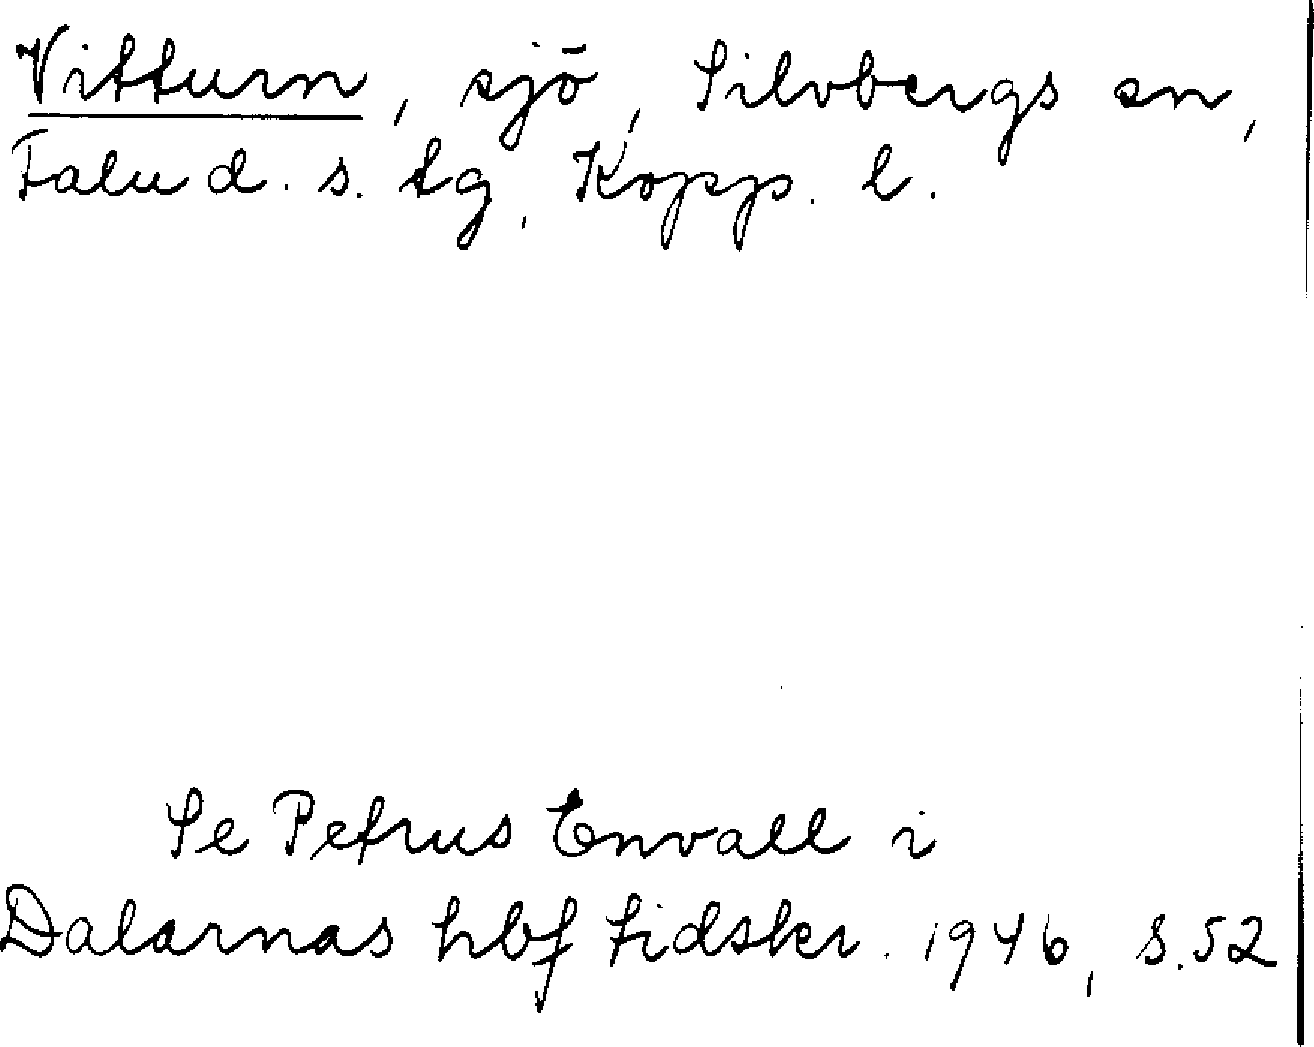 Vitturn, sjö, Silvbergs sn,
Falu d. s. tg, Kopp. l.
Se Petrus Envall i
Dalarnas hbf tidskr. 1946, s. 52